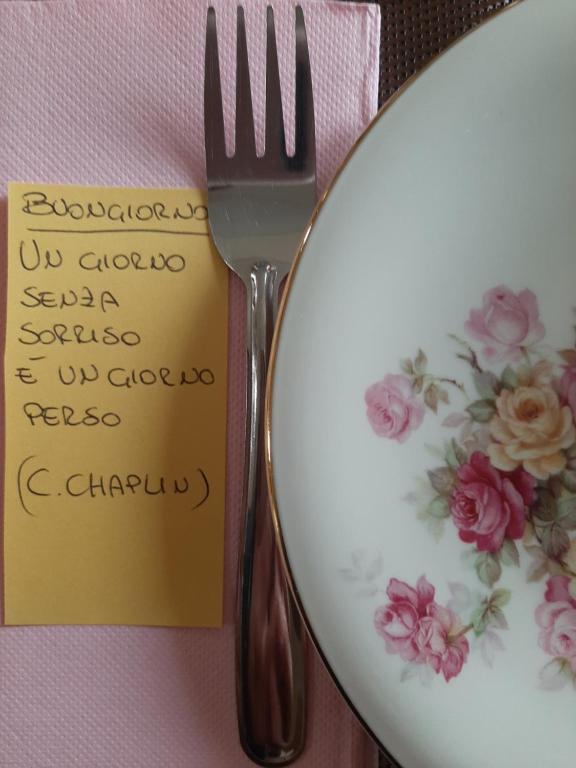 BUONGIORNO
UN GIORNO
SENZA
SORRISO
È UN GIORNO
PERSO
(C. CHAPLIN)